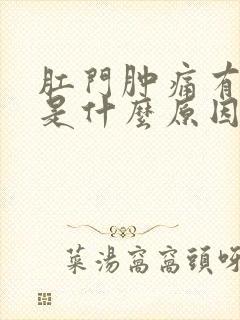 肛門肿痛有
是什麼原因
菜湯窩窩頭呀